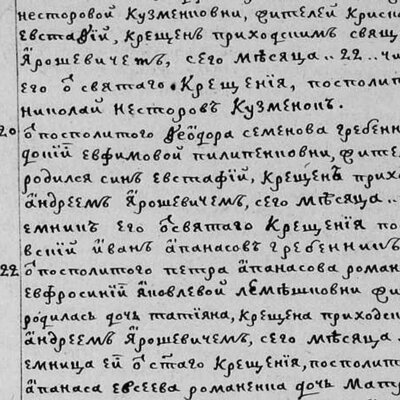 несторовой кузменковни, жителей красно
евстафій, крещенъ приходскимъ свящ
ярошевичемъ, сего мѣсяца .. 22 .. чи
его ѿ святаго крещенія, посполит
николай несторовъ кузменокъ.
20 ѿ посполитого ѳеодора семенова гребенн
фокіи евфимовой пилипенковни, жител
родился синъ евстафій, крещенъ прихо
андреемъ ярошевичемъ, сего мѣсяца ..
емникъ его ѿ святаго крещенія по
вскій иванъ апанасовъ гребенникъ
22 ѿ посполитого петра апанасова роман
евфросиніи яковлевой лемѣшковни жи
родилась дочь татіяна, крещена приходск
андреемъ ярошевичемъ, сего мѣсяца
емница ей ѿ стаго крещенія, посполит
апанаса евсеева романенка дочь матр